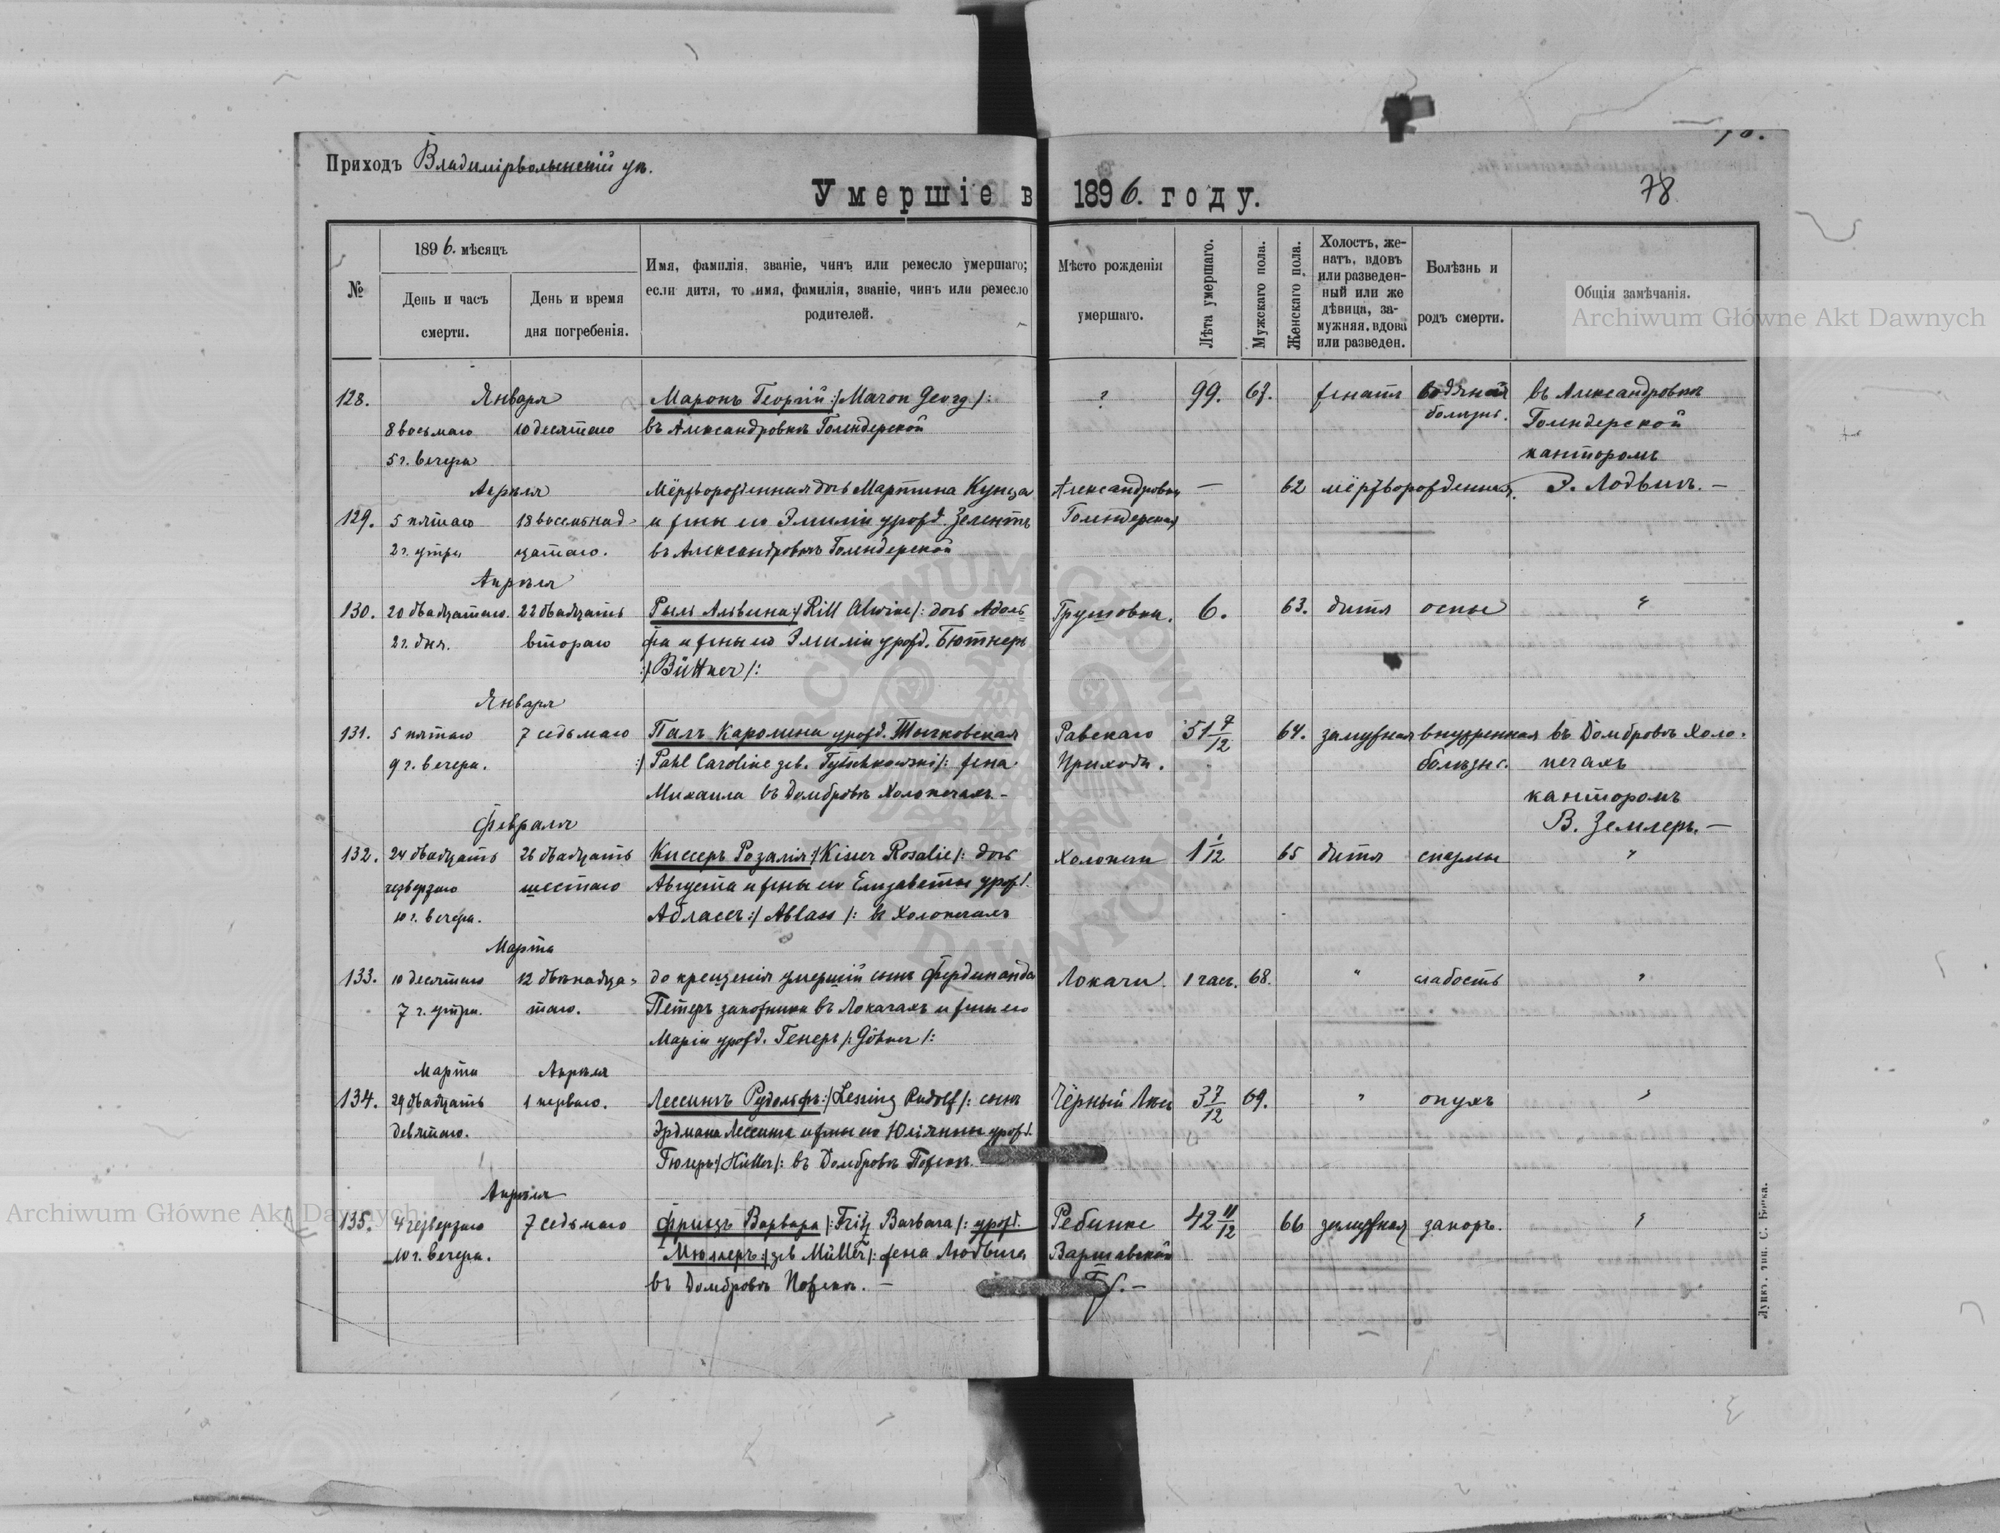 Приходъ Владимірволынскій уѣ.
78
Умершіе в 1896. году.
№
1896. мѣсяцъ
День и часъ смерти.
День и время дня погребенія.
Имя, фамилія, званіе, чинъ или ремесло умершаго;
если дитя, то имя, фамилія, званіе, чинъ или ремесло
родителей.
Мѣсто рожденія
умершаго.
Лѣта умершаго.
Мужескаго пола.
Женскаго пола.
Холостъ, же-
натъ, вдовъ
или разведен-
ный или же
дѣвица, за-
мужняя, вдова
или разведен.
Болѣзнь и
родъ смерти.
Общія замѣчанія.
Archiwum Główne Akt Dawnych
Января
128. Маронъ Георгій :/Maron Georg/: ? 99. 67. женатъ водяная въ Александровкѣ
8 восьмаго 10 десятаго въ Александровкѣ Голендерской болѣзнь. Голендерской
5 г. вечера канторомъ
Апрѣля Мёртворожденная дочь Мартина Кунца Александровка — 62 мёртворожденная. Э. Лодвигъ. —
129. 5 пятаго 18 восемнад- и жены его Эмиліи урожд. Зелентъ Голендерская
2 г. утра цатаго. въ Александровкѣ Голендерской
Апрѣля
130. 20 двадцатаго. 22 двадцать Рыль Альвина :/Rill Alwine/: дочь Адоль- Грушовка. 6. 63. дитя оспы "
2 г. дня. втораго фа и жены его Эмиліи урожд. Бютнеръ
:/Büttner/:
Января
131. 5 пятаго 7 седьмаго Палъ Каролина урожд. Тычковская Равскаго 51 7/12 64. замужняя внутренная въ Домбровѣ Холо-
9 г. вечера. :/Pahl Caroline geb. Tytschkowski/: жена Прихода. болѣзнь. печахъ
Михаила въ Домбровѣ Холопечахъ. – канторомъ
Февраля В. Землеръ. —
132. 24 двадцать 26 двадцать Киссеръ Розалія :/Kisser Rosalie/: дочь Холопечи 1 1/12 65 дитя спазмы "
четвертаго шестаго Августа и жены его Елизаветы урожд.
10 г. вечера. Абласъ :/Ablass/: въ Холопечахъ
Марта
133. 10 десятаго 12 двѣнадца- до крещенія умершій сынъ Фердинанда Локачи. 1 час. 68. " слабость "
7 г. утра. таго. Петеръ законника въ Локачахъ и жены его
Маріи урожд. Генеръ /:Göbner/:
Марта Апрѣля
134. 29 двадцать 1 перваго. Лессингъ Рудольфъ :/Lessing Rudolf/: сынъ Чёрный Лѣсъ 3 7/12 69. " опухъ "
девятаго. Эрдмана Лессинга и жены его Юліянны урожд.
Гюлеръ :/Hüller/: въ Домбровѣ Пожекѣ.
Апрѣля
135. 4 четвертаго 7 седьмаго Фрицъ Варвара /:Fritz Barbara/: урожд. Ребинке 42 11/12 66 замужняя запоръ. "
10 г. вечера. Мюллеръ :/geb Müller/: жена Людвига Варшавской
въ Домбровѣ Пожекѣ. — Губ. —
Archiwum Główne Akt Dawnych
Луцкъ, тип. С. Бокка.